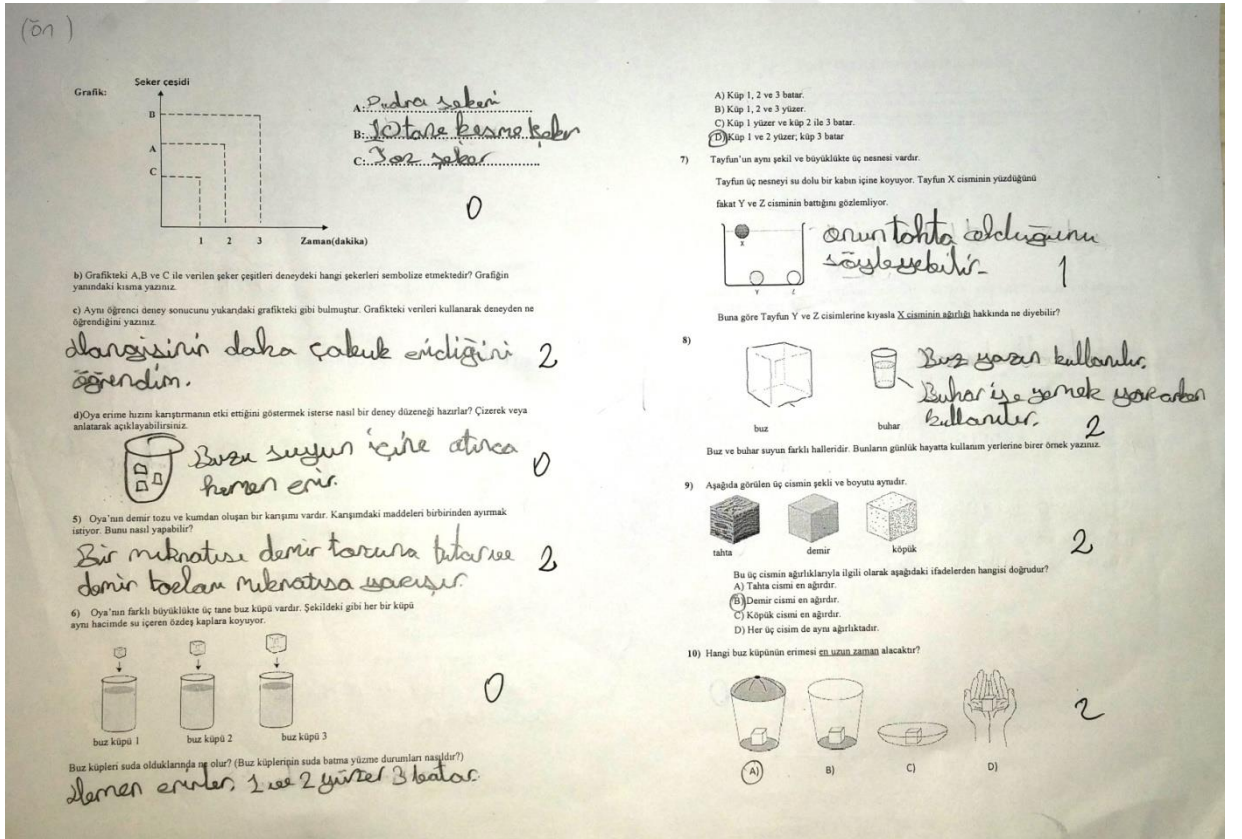 (ön )
Şeker çeşidi
Grafik:
B
A
C
1 2 3 Zaman(dakika)
A: Pudra şekeri
B: 10 tane kesme şeker
C: Toz şeker
0
b) Grafikteki A,B ve C ile verilen şeker çeşitleri deneydeki hangi şekerleri sembolize etmektedir? Grafiğin
yanındaki kısma yazınız.
c) Aynı öğrenci deney sonucunu yukarıdaki grafikteki gibi bulmuştur. Grafikteki verileri kullanarak deneyden ne
öğrendiğini yazınız.
Hangisinin daha çabuk eridiğini 2
öğrendim.
d)Oya erime hızını karıştırmanın etki ettiğini göstermek isterse nasıl bir deney düzeneği hazırlar? Çizerek veya
anlatarak açıklayabilirsiniz.
Buzu suyun içine atınca 0
hemen erir.
5) Oya'nın demir tozu ve kumdan oluşan bir karışımı vardır. Karışımdaki maddeleri birbirinden ayırmak
istiyor. Bunu nasıl yapabilir?
Bir mıknatısı demir tozuna tutar ve 2
demir tozları mıknatısa yapışır.
6) Oya'nın farklı büyüklükte üç tane buz küpü vardır. Şekildeki gibi her bir küpü
aynı hacimde su içeren özdeş kaplara koyuyor.
0
buz küpü 1 buz küpü 2 buz küpü 3
Buz küpleri suda olduklarında ne olur? (Buz küplerinin suda batma yüzme durumları nasıldır?)
Hemen erirler. 1 ve 2 yüzer 3 batar.
A) Küp 1, 2 ve 3 batar.
B) Küp 1, 2 ve 3 yüzer.
C) Küp 1 yüzer ve küp 2 ile 3 batar.
D) Küp 1 ve 2 yüzer; küp 3 batar
7) Tayfun'un aynı şekil ve büyüklükte üç nesnesi vardır.
Tayfun üç nesneyi su dolu bir kabın içine koyuyor. Tayfun X cisminin yüzdüğünü
fakat Y ve Z cisminin battığını gözlemliyor.
X
Y Z
onun tahta olduğunu
söyleyebilir. 1
Buna göre Tayfun Y ve Z cisimlerine kıyasla X cisminin ağırlığı hakkında ne diyebilir?
8)
buz buhar
Buz yazın kullanılır.
Buhar ise yemek yaparken
kullanılır. 2
Buz ve buhar suyun farklı halleridir. Bunların günlük hayatta kullanım yerlerine birer örnek yazınız.
9) Aşağıda görülen üç cismin şekli ve boyutu aynıdır.
tahta demir köpük
2
Bu üç cismin ağırlıklarıyla ilgili olarak aşağıdaki ifadelerden hangisi doğrudur?
A) Tahta cismi en ağırdır.
B) Demir cismi en ağırdır.
C) Köpük cismi en ağırdır.
D) Her üç cisim de aynı ağırlıktadır.
10) Hangi buz küpünün erimesi en uzun zaman alacaktır?
2
A) B) C) D)